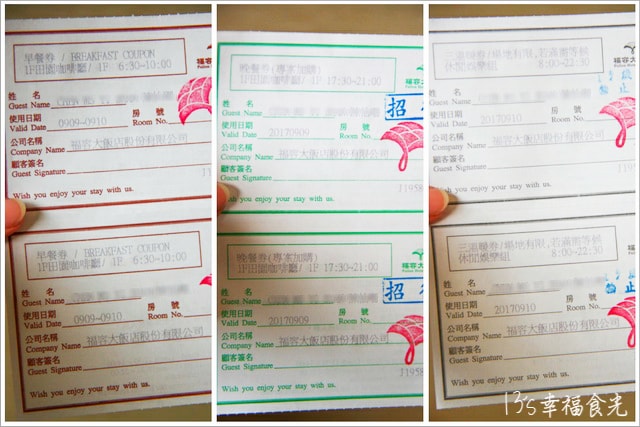 早餐券 / BREAKFAST COUPON
1F田園咖啡廳 / 1F 6:30-10:00
姓 名
Guest Name
使用日期 房 號
Valid Date 0909-0910 Room No.
公司名稱
Company Name 福容大飯店股份有限公司
顧客簽名
Guest Signature
Wish you enjoy your stay with us.
早餐券 / BREAKFAST COUPON
1F田園咖啡廳 / 1F 6:30-10:00
姓 名
Guest Name
使用日期 房 號
Valid Date 0909-0910 Room No.
公司名稱
Company Name 福容大飯店股份有限公司
顧客簽名
Guest Signature
Wish you enjoy your stay with us.
晚餐券(專案加購)
1F田園咖啡廳 / 1F 17:30-21:00
福容大
招
姓 名
Guest Name
使用日期 房 號
Valid Date 20170909 Room No.
公司名稱
Company Name 福容大飯店股份有限公司
顧客簽名
Guest Signature
J1958
Wish you enjoy your stay with us.
晚餐券(專案加購)
1F田園咖啡廳 / 1F 17:30-21:00
福容大
招
姓 名
Guest Name
使用日期 房 號
Valid Date 20170909 Room No.
公司名稱
Company Name 福容大飯店股份有限公司
顧客簽名
Guest Signature
J1958
Wish you enjoy your stay with us.
休閒娛樂組 8:00-22:30
福容
姓 名
Guest Name
使用日期 房 號
Valid Date 20170910 Room No.
公司名稱
Company Name 福容大飯店股份有限公司
顧客簽名
Guest Signature
J19
Wish you enjoy your stay with us.
休閒娛樂組 8:00-22:30
姓 名
Guest Name
使用日期 房 號
Valid Date 20170910 Room No.
公司名稱
Company Name 福容大飯店股份有限公司
顧客簽名
Guest Signature
Wish you enjoy your stay with us.
13's幸福食光